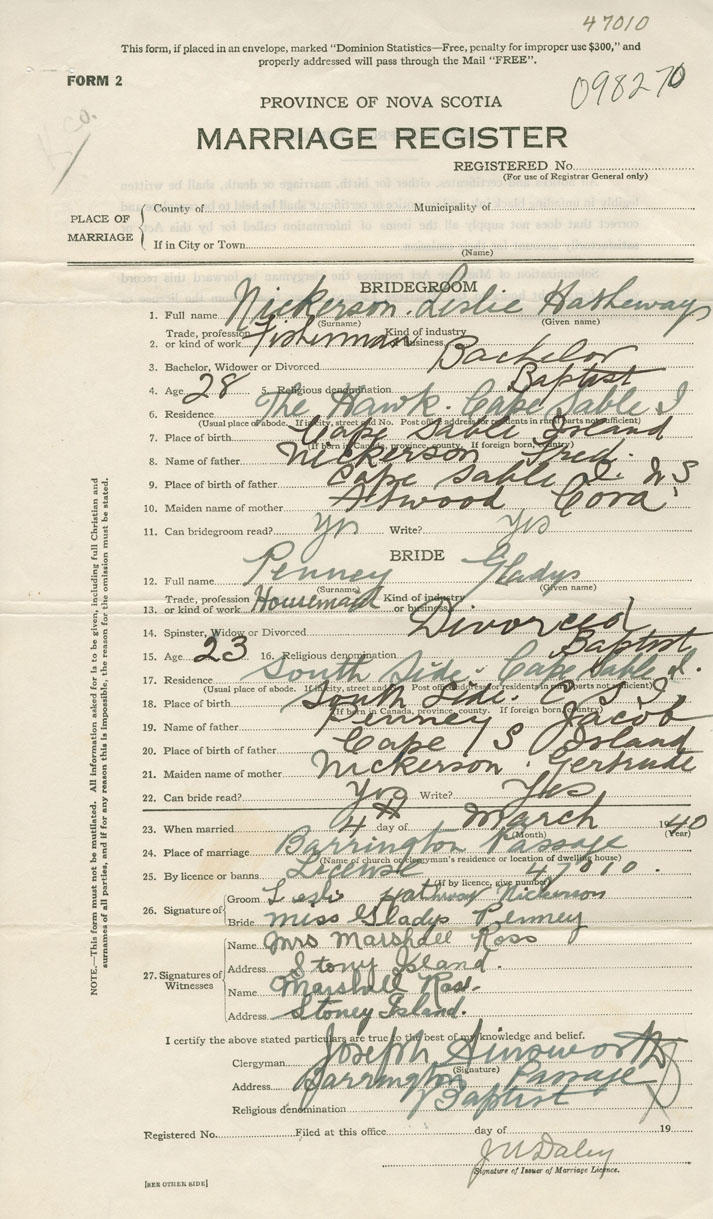 47010
This form, if placed in an envelope, marked "Dominion Statistics—Free, penalty for improper use $300," and
properly addressed will pass through the Mail "FREE".
FORM 2
098270
PROVINCE OF NOVA SCOTIA
MARRIAGE REGISTER
REGISTERED No.
(For use of Registrar General only)
PLACE OF MARRIAGE
County of Municipality of
If in City or Town
(Name)
BRIDEGROOM
1. Full name Nickerson. Leslie Hatheway
(Surname) (Given name)
2. Trade, profession or kind of work Fisherman Kind of industry or business
3. Bachelor, Widower or Divorced Bachelor
4. Age 28 5. Religious denomination Baptist
6. Residence The Hawk. Cape Sable I
(Usual place of abode. If in city, street and No. Post office address for residents in rural parts not sufficient)
7. Place of birth Cape Sable Island
(If born in Canada, province, county. If foreign born, country)
8. Name of father Nickerson Fred.
9. Place of birth of father Cape Sable I. N S
10. Maiden name of mother Atwood Cora
11. Can bridegroom read? Yes Write? Yes
BRIDE
12. Full name Penney Gladys
(Surname) (Given name)
13. Trade, profession or kind of work Housemaid Kind of industry or business
14. Spinster, Widow or Divorced Divorced
15. Age 23 16. Religious denomination Baptist
17. Residence South Side. Cape Sable I.
(Usual place of abode. If in city, street and No. Post office address for residents in rural parts not sufficient)
18. Place of birth South Side. C. S. I.
(If born in Canada, province, county. If foreign born, country)
19. Name of father Penney Jacob
20. Place of birth of father Cape S Island
21. Maiden name of mother Nickerson. Gertrude
22. Can bride read? Yes Write? Yes
23. When married 4th day of March 1940
(Month) (Year)
24. Place of marriage Barrington Passage
(Name of church or clergyman's residence or location of dwelling house)
25. By licence or banns License 47010.
(If by licence, give number)
26. Signature of
Groom Leslie Hathway Nickerson
Bride Miss Gladys Penney
27. Signatures of Witnesses
Name Mrs Marshall Ross
Address Stony Island.
Name Marshall Ross.
Address Stoney Island.
I certify the above stated particulars are true to the best of my knowledge and belief.
Clergyman Joseph Ainsworth
(Signature)
Address Barrington Passage
Religious denomination Baptist
Registered No. Filed at this office day of 19
(Signature of Issuer of Marriage Licence.
[SEE OTHER SIDE]
NOTE.—This form must not be mutilated. All information asked for is to be given, including full Christian and
surnames of all parties, and if for any reason this is impossible, the reason for the omission must be stated.